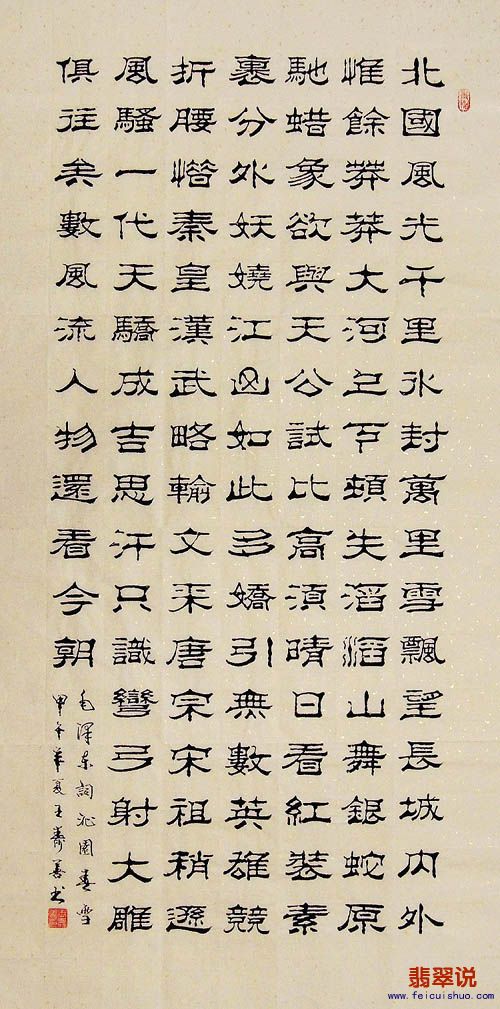 北國風光千里氷封萬里雪飄望長城内外
惟餘莽莽大河上下頓失滔滔山舞銀蛇原
馳蜡象欲與天公試比高須晴日看紅裝素
裹分外妖嬈江山如此多嬌引無數英雄競
折腰惜秦皇漢武略輸文采唐宗宋祖稍遜
風騷一代天驕成吉思汗只識彎弓射大雕
俱往矣數風流人物還看今朝
毛澤東詞沁園春雪
甲午夏王善书
翡翠说
www.feicuishuo.com